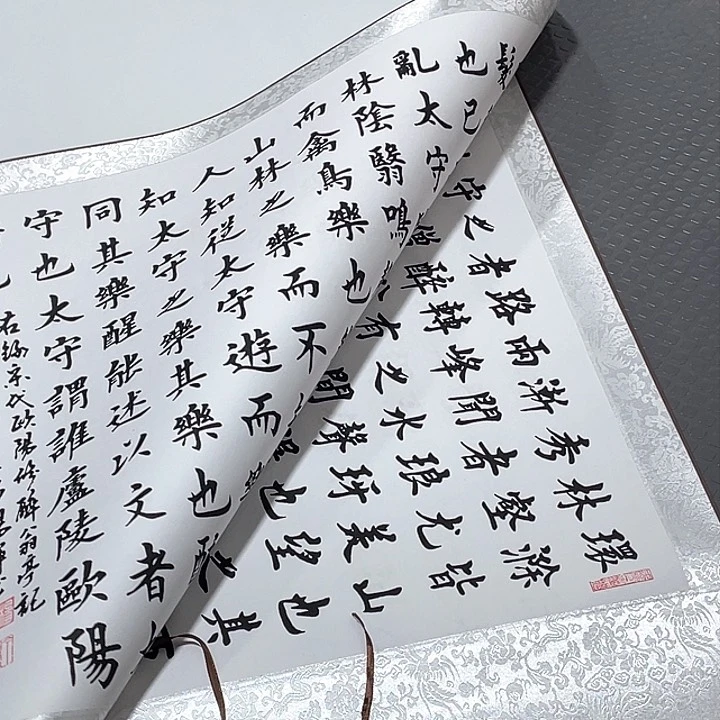 環滁皆山也其
林壑尤美望
秀者琅琊也
漸聞水聲
兩峰之間
路轉有
者醉
之僧
守
髮
也已
亂太守
林陰翳鳴
而禽鳥樂也
山林之樂而不
人知從太守遊而
知太守之樂其樂也醉
同其樂醒能述以文者太
守也太守謂誰廬陵歐陽
右錄宋代歐陽脩醉翁亭記